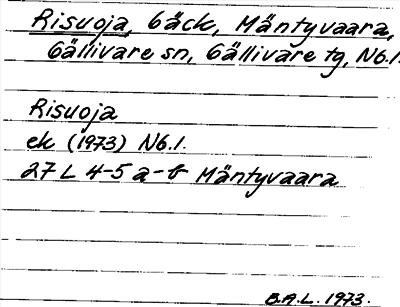 Risuoja, bäck, Mäntyvaara,
Gällivare sn, Gällivare tg, Nb.l.
Risuoja
ek (1973) Nb.l.
27 L 4-5 a-b Mäntyvaara
B.A.L. 1973.